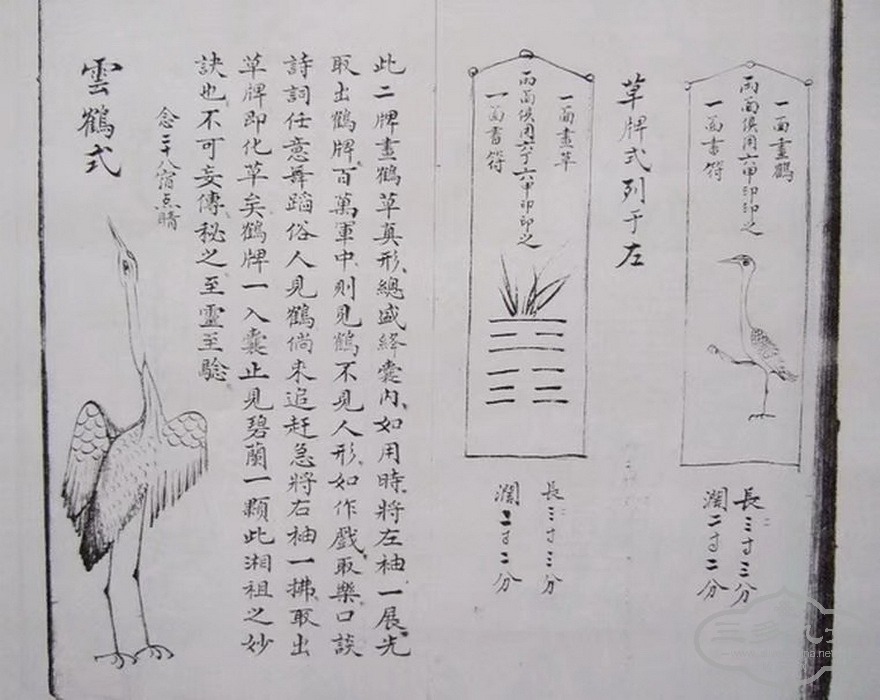 一面畫鶴
兩面俱用六甲印印之
一面書符
長三寸三分
濶二寸二分
草牌式列于左
一面畫草
兩面俱用六丁六甲印印之
一面書符
長三寸三分
濶二寸二分
此二牌畫鶴草真形總盛絳囊内如用時將左袖一展先
取出鶴牌百萬軍中則見鶴不見人形如作戲取樂口談
詩詞任意舞蹈俗人見鶴倘来追赶急將右袖一拂取出
草牌即化草矣鶴牌一入囊止見碧蘭一顆此湘祖之妙
訣也不可妄傳秘之至靈至驗
念二十八宿点睛
雲鶴式